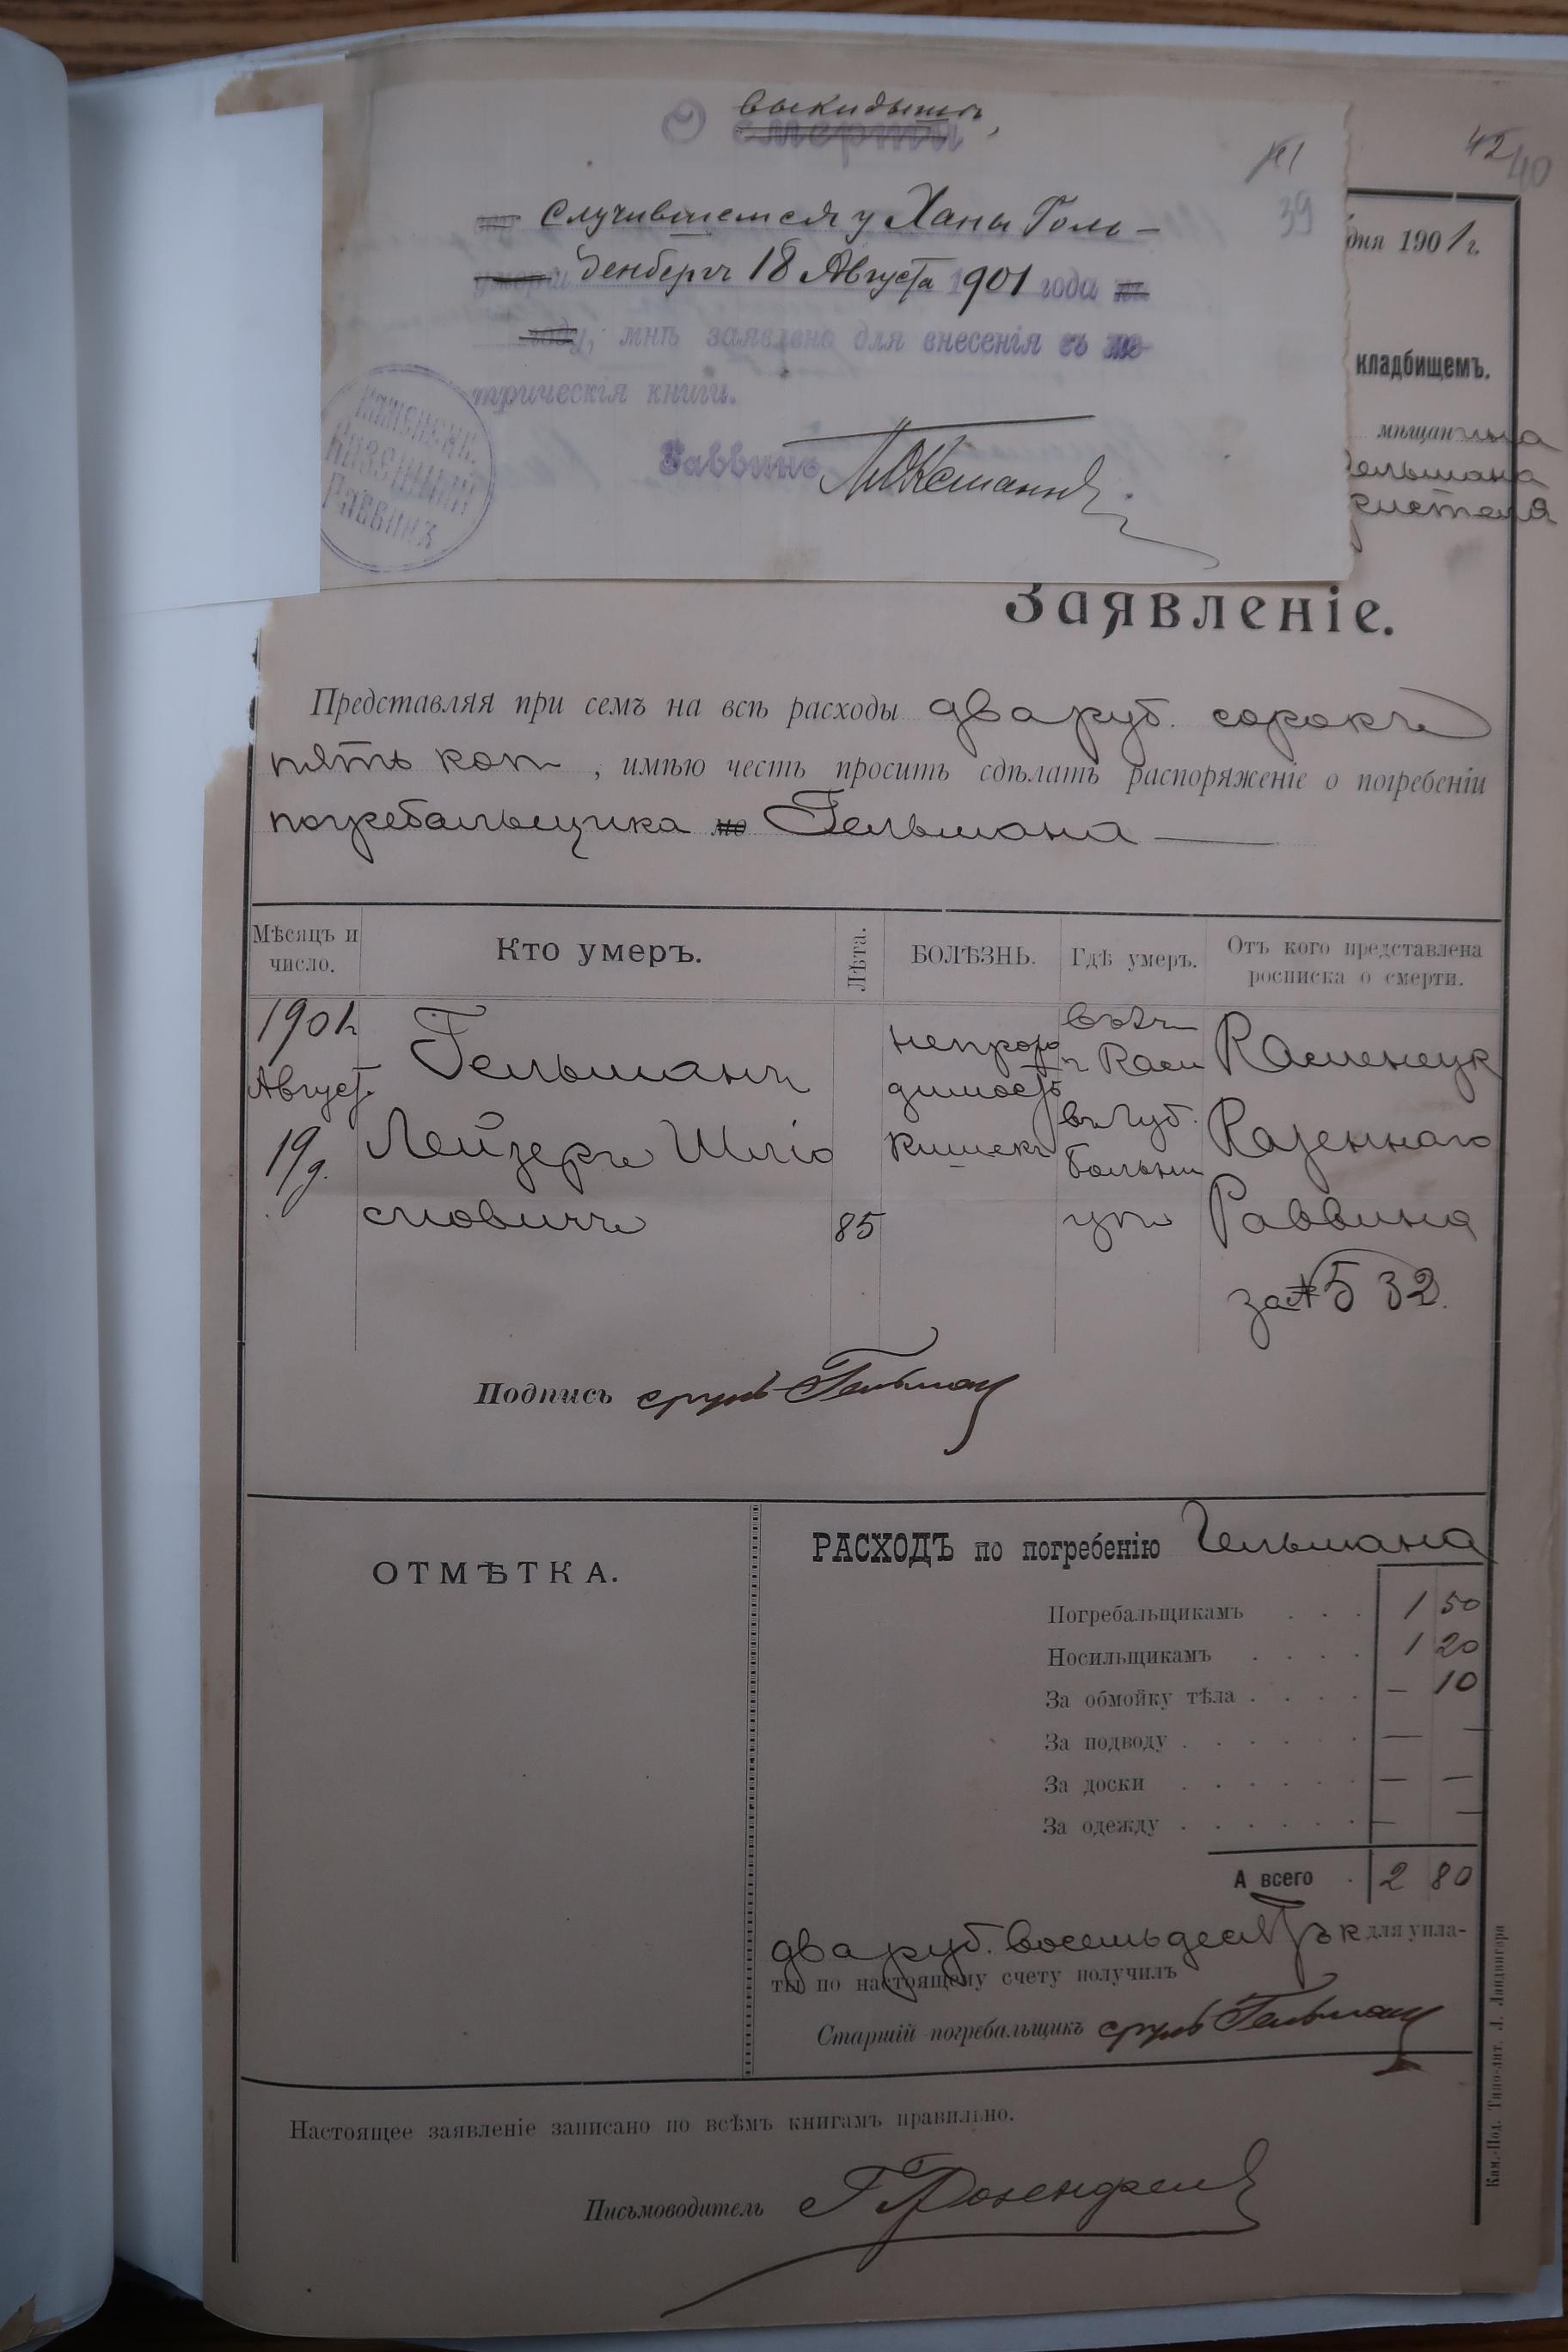 выкидышѣ,
О смерти
41
39
42
40
случившемся у Ханы Голь-
умерш денбергъ 18 Августа 1901 года
году, мнѣ заявлено для внесенія въ ме-
трическія книги.
Раввинъ
КАМЕНЕЦК.
КАЗЕННЫЙ
РАВВИНЪ
дня 1901 г.
кладбищемъ.
мѣщанина
Гельмана
жителя
Заявленіе.
Представляя при семъ на всѣ расходы два руб. сорокъ
пять коп , имѣю честь просить сдѣлать распоряженіе о погребеніи
погребальщика Гельмана
Мѣсяцъ и число.
Кто умеръ.
Лѣта.
БОЛѢЗНЬ.
Гдѣ умеръ.
Отъ кого представлена росписка о смерти.
1901 г. Август. 19 д.
Гельманъ
Лейзеръ Шліо
мовичъ
85
непрохо
димость
кишекъ
въ г. Кам
въ Губ.
больни
цѣ
Каменецк
Казеннаго
Раввина
за № 532.
Подпись сруль Гельман
ОТМѢТКА.
РАСХОДЪ по погребенію Гельмана
Погребальщикамъ . . . 1 50
Носильщикамъ . . . . 1 20
За обмойку тѣла . . . . — 10
За подводу . . . . . . — —
За доски . . . . . . — —
За одежду . . . . . . — —
А всего . 2 80
два руб. восемьдесятъ к для упла-
ты по настоящему счету получилъ
Старшій погребальщикъ сруль Гельман
Настоящее заявленіе записано по всѣмъ книгамъ правильно.
Письмоводитель Г Розенфельд
Кам.-Под. Типо-лит. Л. Ландвигера